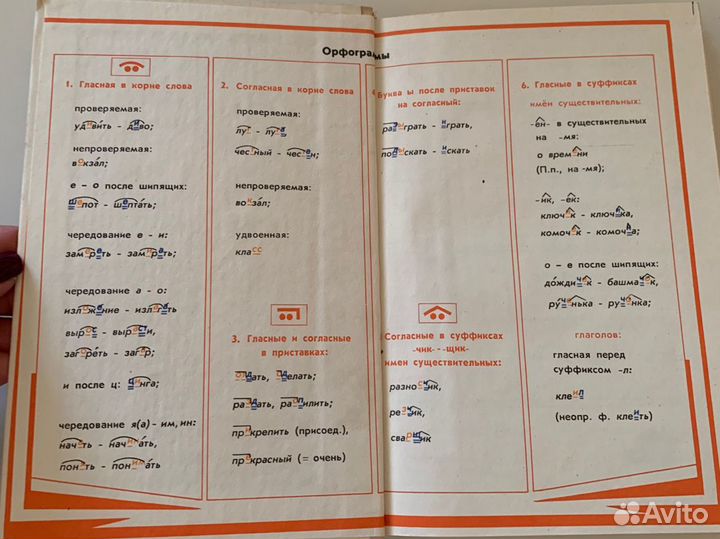 Орфограммы
1. Гласная в корне слова
проверяемая:
удивить - диво;
непроверяемая:
вокзал;
е - о после шипящих:
шепот - шептать;
чередование е - и:
замереть - замирать;
чередование а - о:
изложение - излагать
вырос - вырасти,
загореть - загар;
и после ц: цинга;
чередование я(а) - им, ин:
начать - начинать,
понять - понимать
2. Согласная в корне слова
проверяемая:
луг - луга
честный - честен;
непроверяемая:
вокзал;
удвоенная:
класс
3. Гласные и согласные
в приставках:
отдать, делать;
раздать, распилить;
прикрепить (присоед.),
прекрасный (= очень)
Буква ы после приставок
на согласный:
разыграть - играть,
подыскать - искать
Согласные в суффиксах
-чик- - -щик-
имен существительных:
разносчик,
резчик,
сварщик
6. Гласные в суффиксах
имён существительных:
-ен- в существительных
на -мя:
о времени
(П.п., на -мя);
-ик, -ек:
ключик - ключика,
комочек - комочка;
о - е после шипящих:
дождичек - башмачок,
рученька - ручонка;
глаголов:
гласная перед
суффиксом -л:
клеил
(неопр. ф. клеить)
Avito